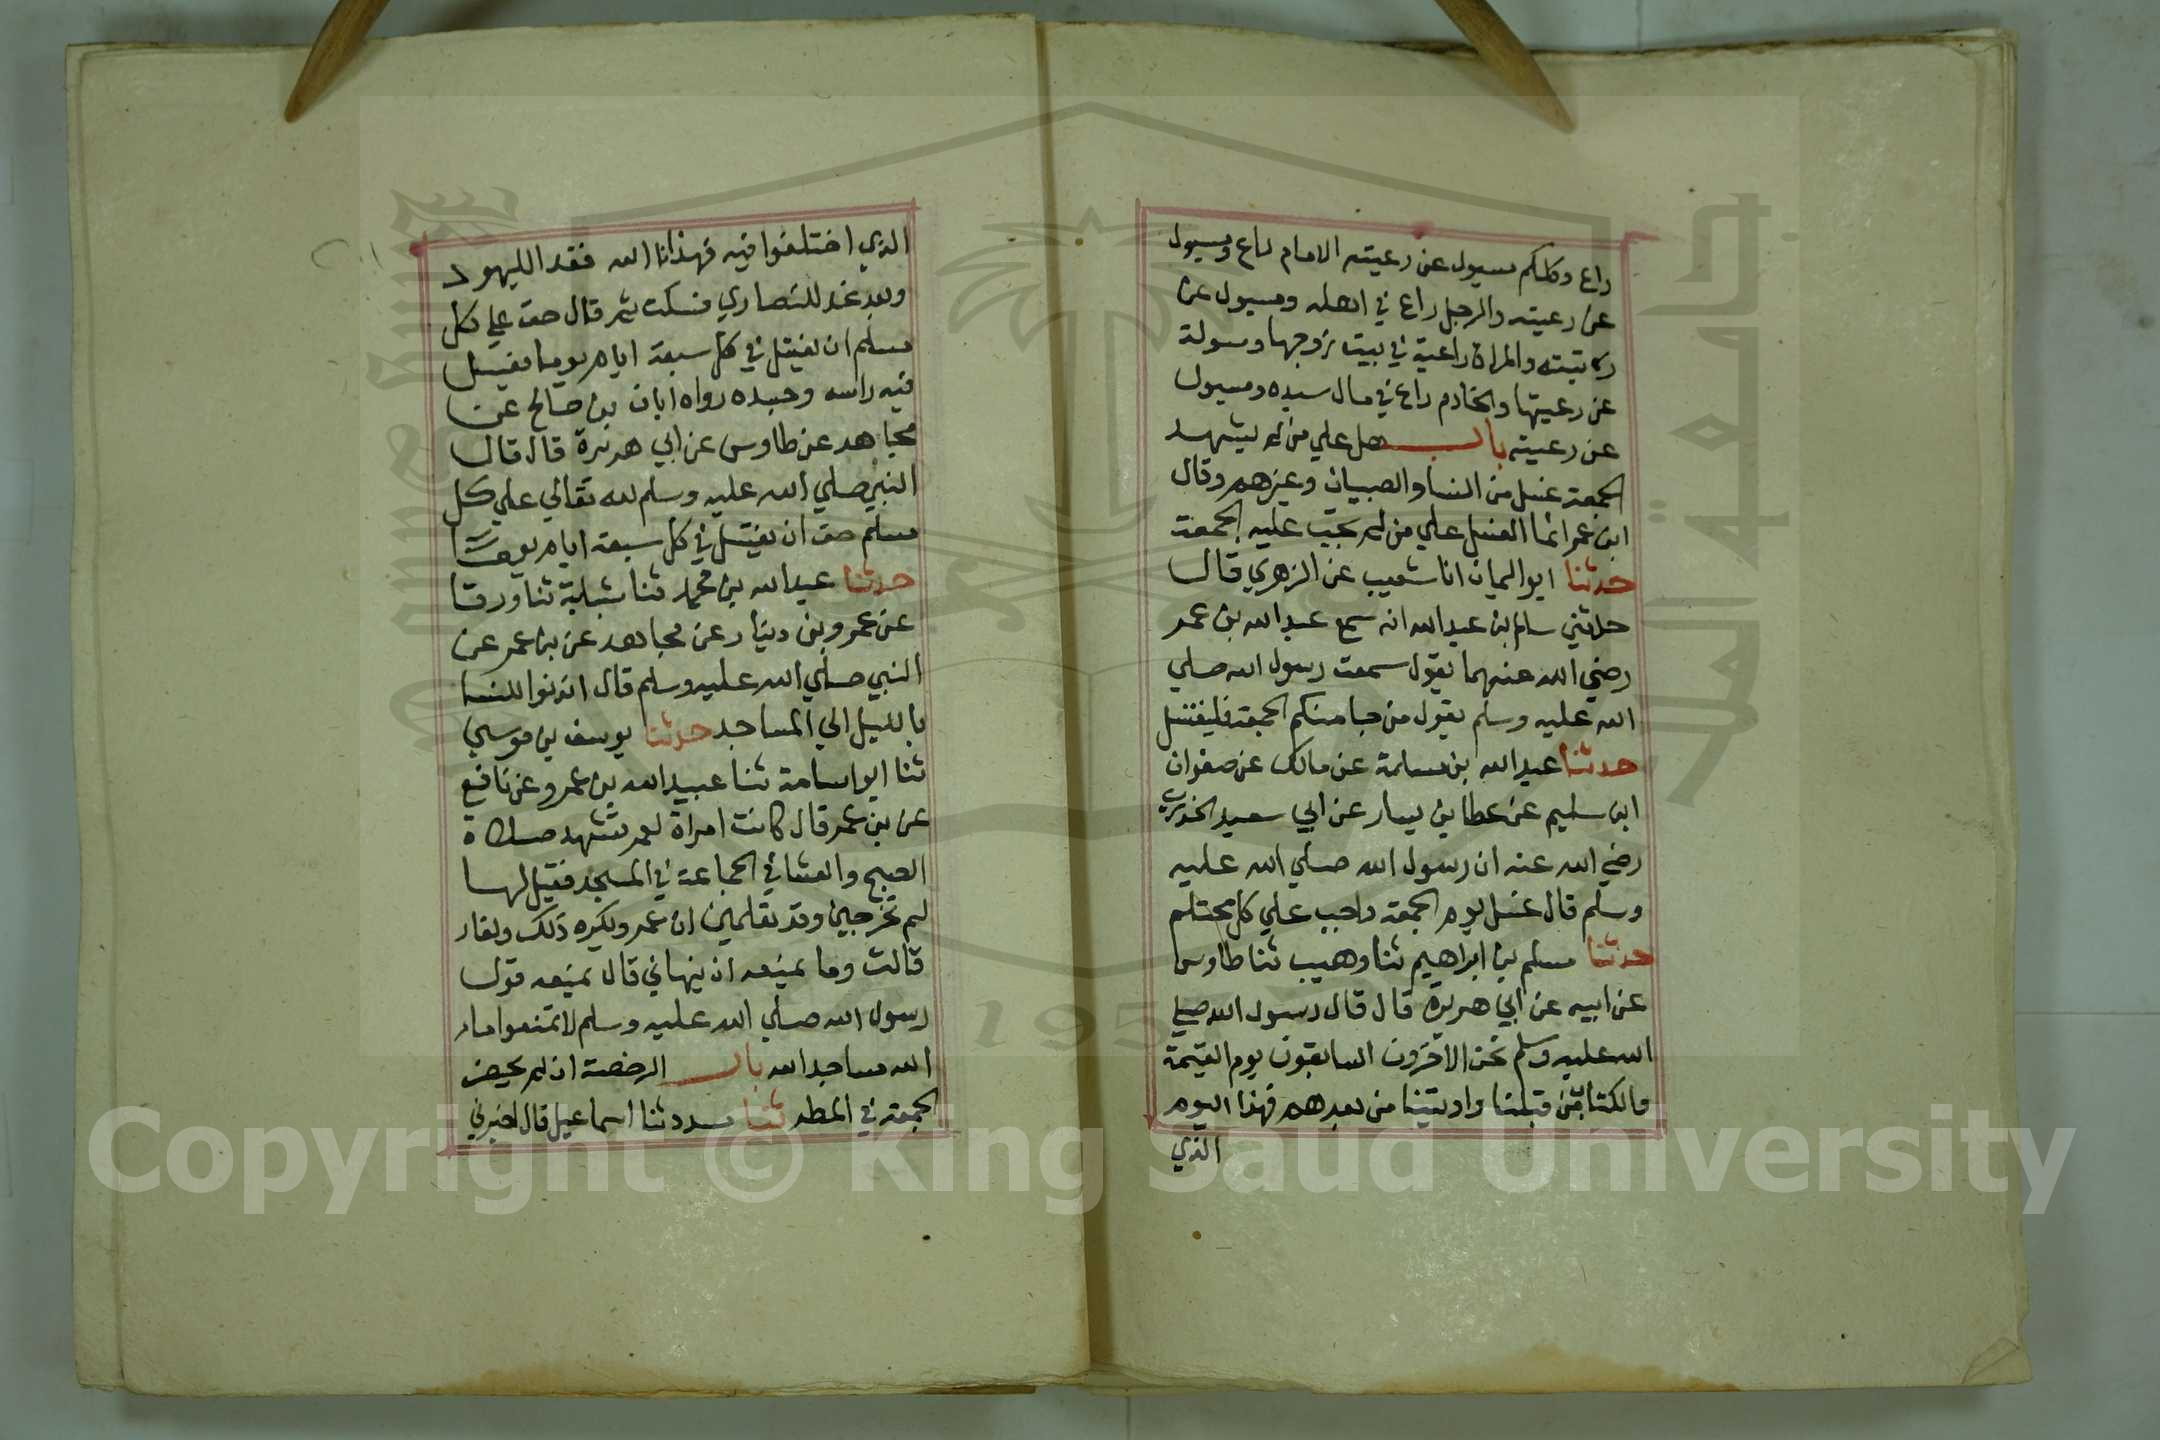 راع وكلكم مسيول عن رعيته الامام راع ومسيول
عن رعيته والرجل راع في اهله ومسيول عن
رعيته والمراة راعية في بيت زوجها ومسولة
عن رعيتها والخادم راع في مال سيده ومسيول
عن رعيته باب هل علي من لم يشهد
الجمعة غسل من النسا والصبيان وغيرهم وقال
ابن عمر انما الغسل علي من لم يجب عليه الجمعة
حدثنا ابو اليمان انا شعيب عن الزهري قال
حدثني سالم بن عبد الله انه سمع عبد الله بن عمر
رضي الله عنهما يقول سمعت رسول الله صلي
الله عليه وسلم يقول من جا منكم الجمعة فليغتسل
حدثنا عبد الله بن مسلمة عن مالك عن صفوان
ابن سليم عن عطا بن يسار عن ابي سعيد الخدري
رضي الله عنه ان رسول الله صلي الله عليه
وسلم قال غسل يوم الجمعة واجب علي كل محتلم
حدثنا مسلم بن ابراهيم ثنا وهيب ثنا طاوس
عن ابيه عن ابي هريرة قال قال رسول الله صلي
الله عليه وسلم نحن الاخرون السابقون يوم القيمة
والكتاب من قبلنا واوتينا من بعدهم فهذا اليوم
الذي
الذي اختلفوا فيه فهذانا الله فقد اليهود
وبعد غد للنصاري فسكت ثم قال حق علي كل
مسلم ان يغتسل في كل سبعة ايام يوما يغسل
فيه راسه وجسده رواه ابان بن صالح عن
مجاهد عن طاوس عن ابي هريرة قال قال
النبي صلي الله عليه وسلم لله تعالي علي كل
مسلم حق ان يغتسل في كل سبعة ايام يوما
حدثنا عبد الله بن محمد ثنا شبابة ثنا ورقا
عن عمرو بن دينار عن مجاهد عن بن عمر عن
النبي صلي الله عليه وسلم قال ائذنوا للنسا
بالليل الي المساجد حدثنا يوسف بن موسي
ثنا ابو اسامة ثنا عبيد الله بن عمرو عن نافع
عن بن عمر قال كانت امراة لعمر تشهد صلاة
الصبح والعشا في الجماعة في المسجد فقيل لها
لم تخرجين وقد تعلمين ان عمر ويكره ذلك ويغار
قالت وما يمنعه ان ينهاني قال يمنعه قول
رسول الله صلي الله عليه وسلم لا تمنعوا اماء
الله مساجد الله باب الرخصة ان لم يحضر
الجمعة في المطر ثنا مسدد ثنا اسماعيل قال اخبرني
Copyright © King Saud University
1957